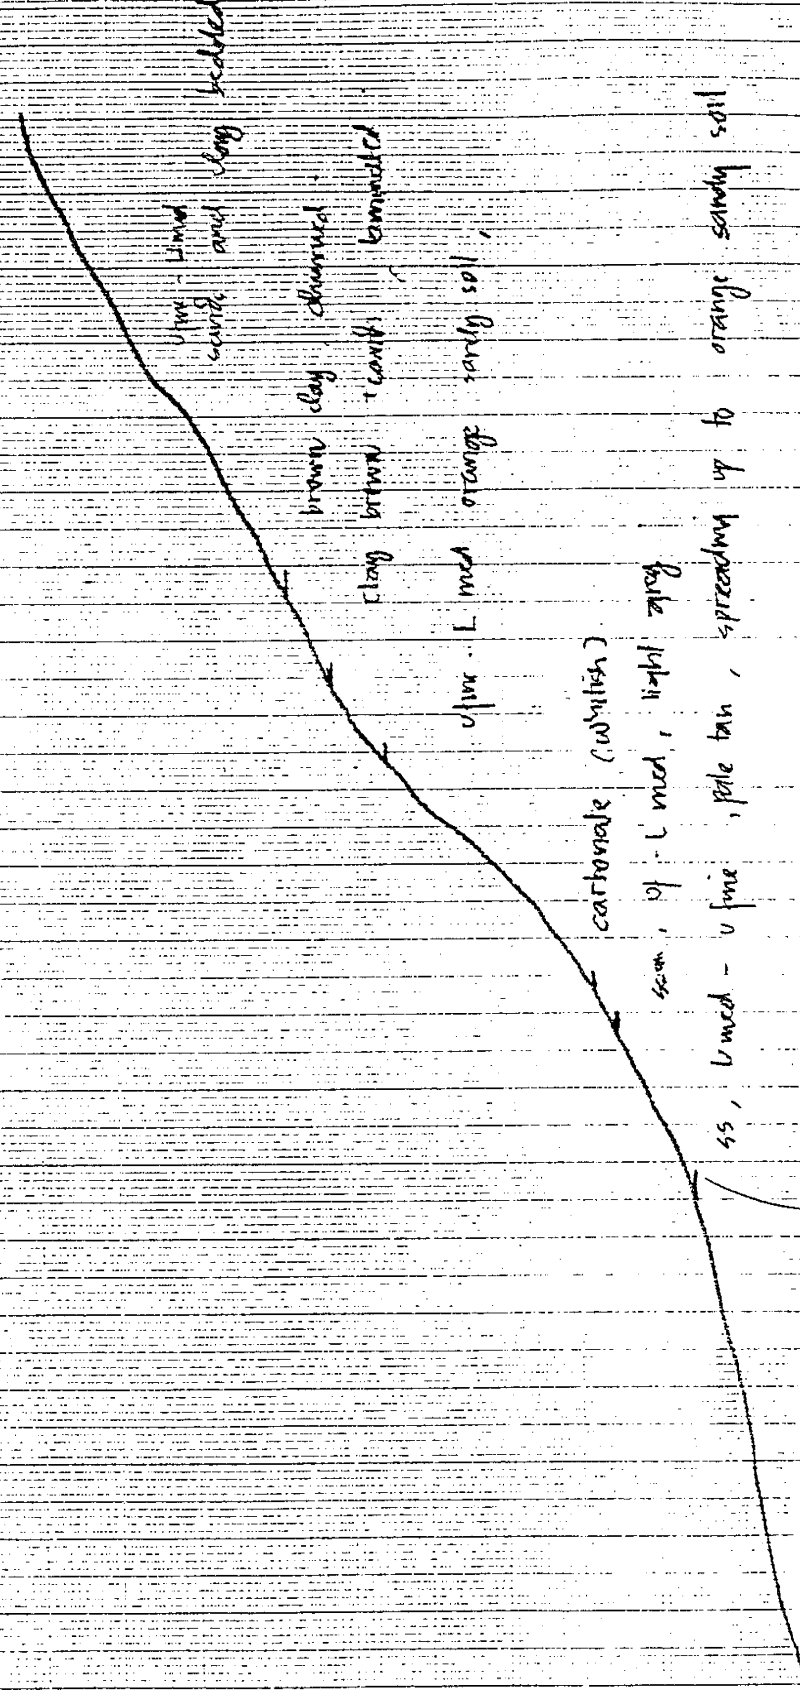 vfine - Umed
sand and clay bedded
brown clay,
clay brown laminated
vfine - L med orange sandy soil,
carbonate (whitish)
vf - L med, light gray
ss, Umed - vfine, pale tan, spreading up to orange sandy soil